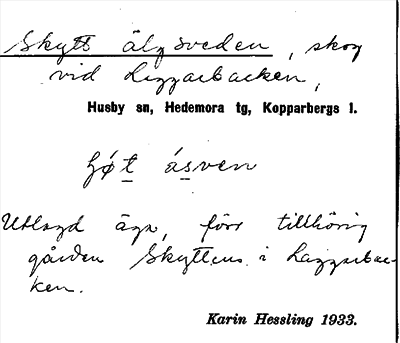 Skyttälgsveden, skog
vid Laggarbacken,
Husby sn, Hedemora tg, Kopparbergs l.
ásven
Utlagd äga, förr tillhörig
gården Skyttens i Laggarbac-
ken.
Karin Hessling 1933.